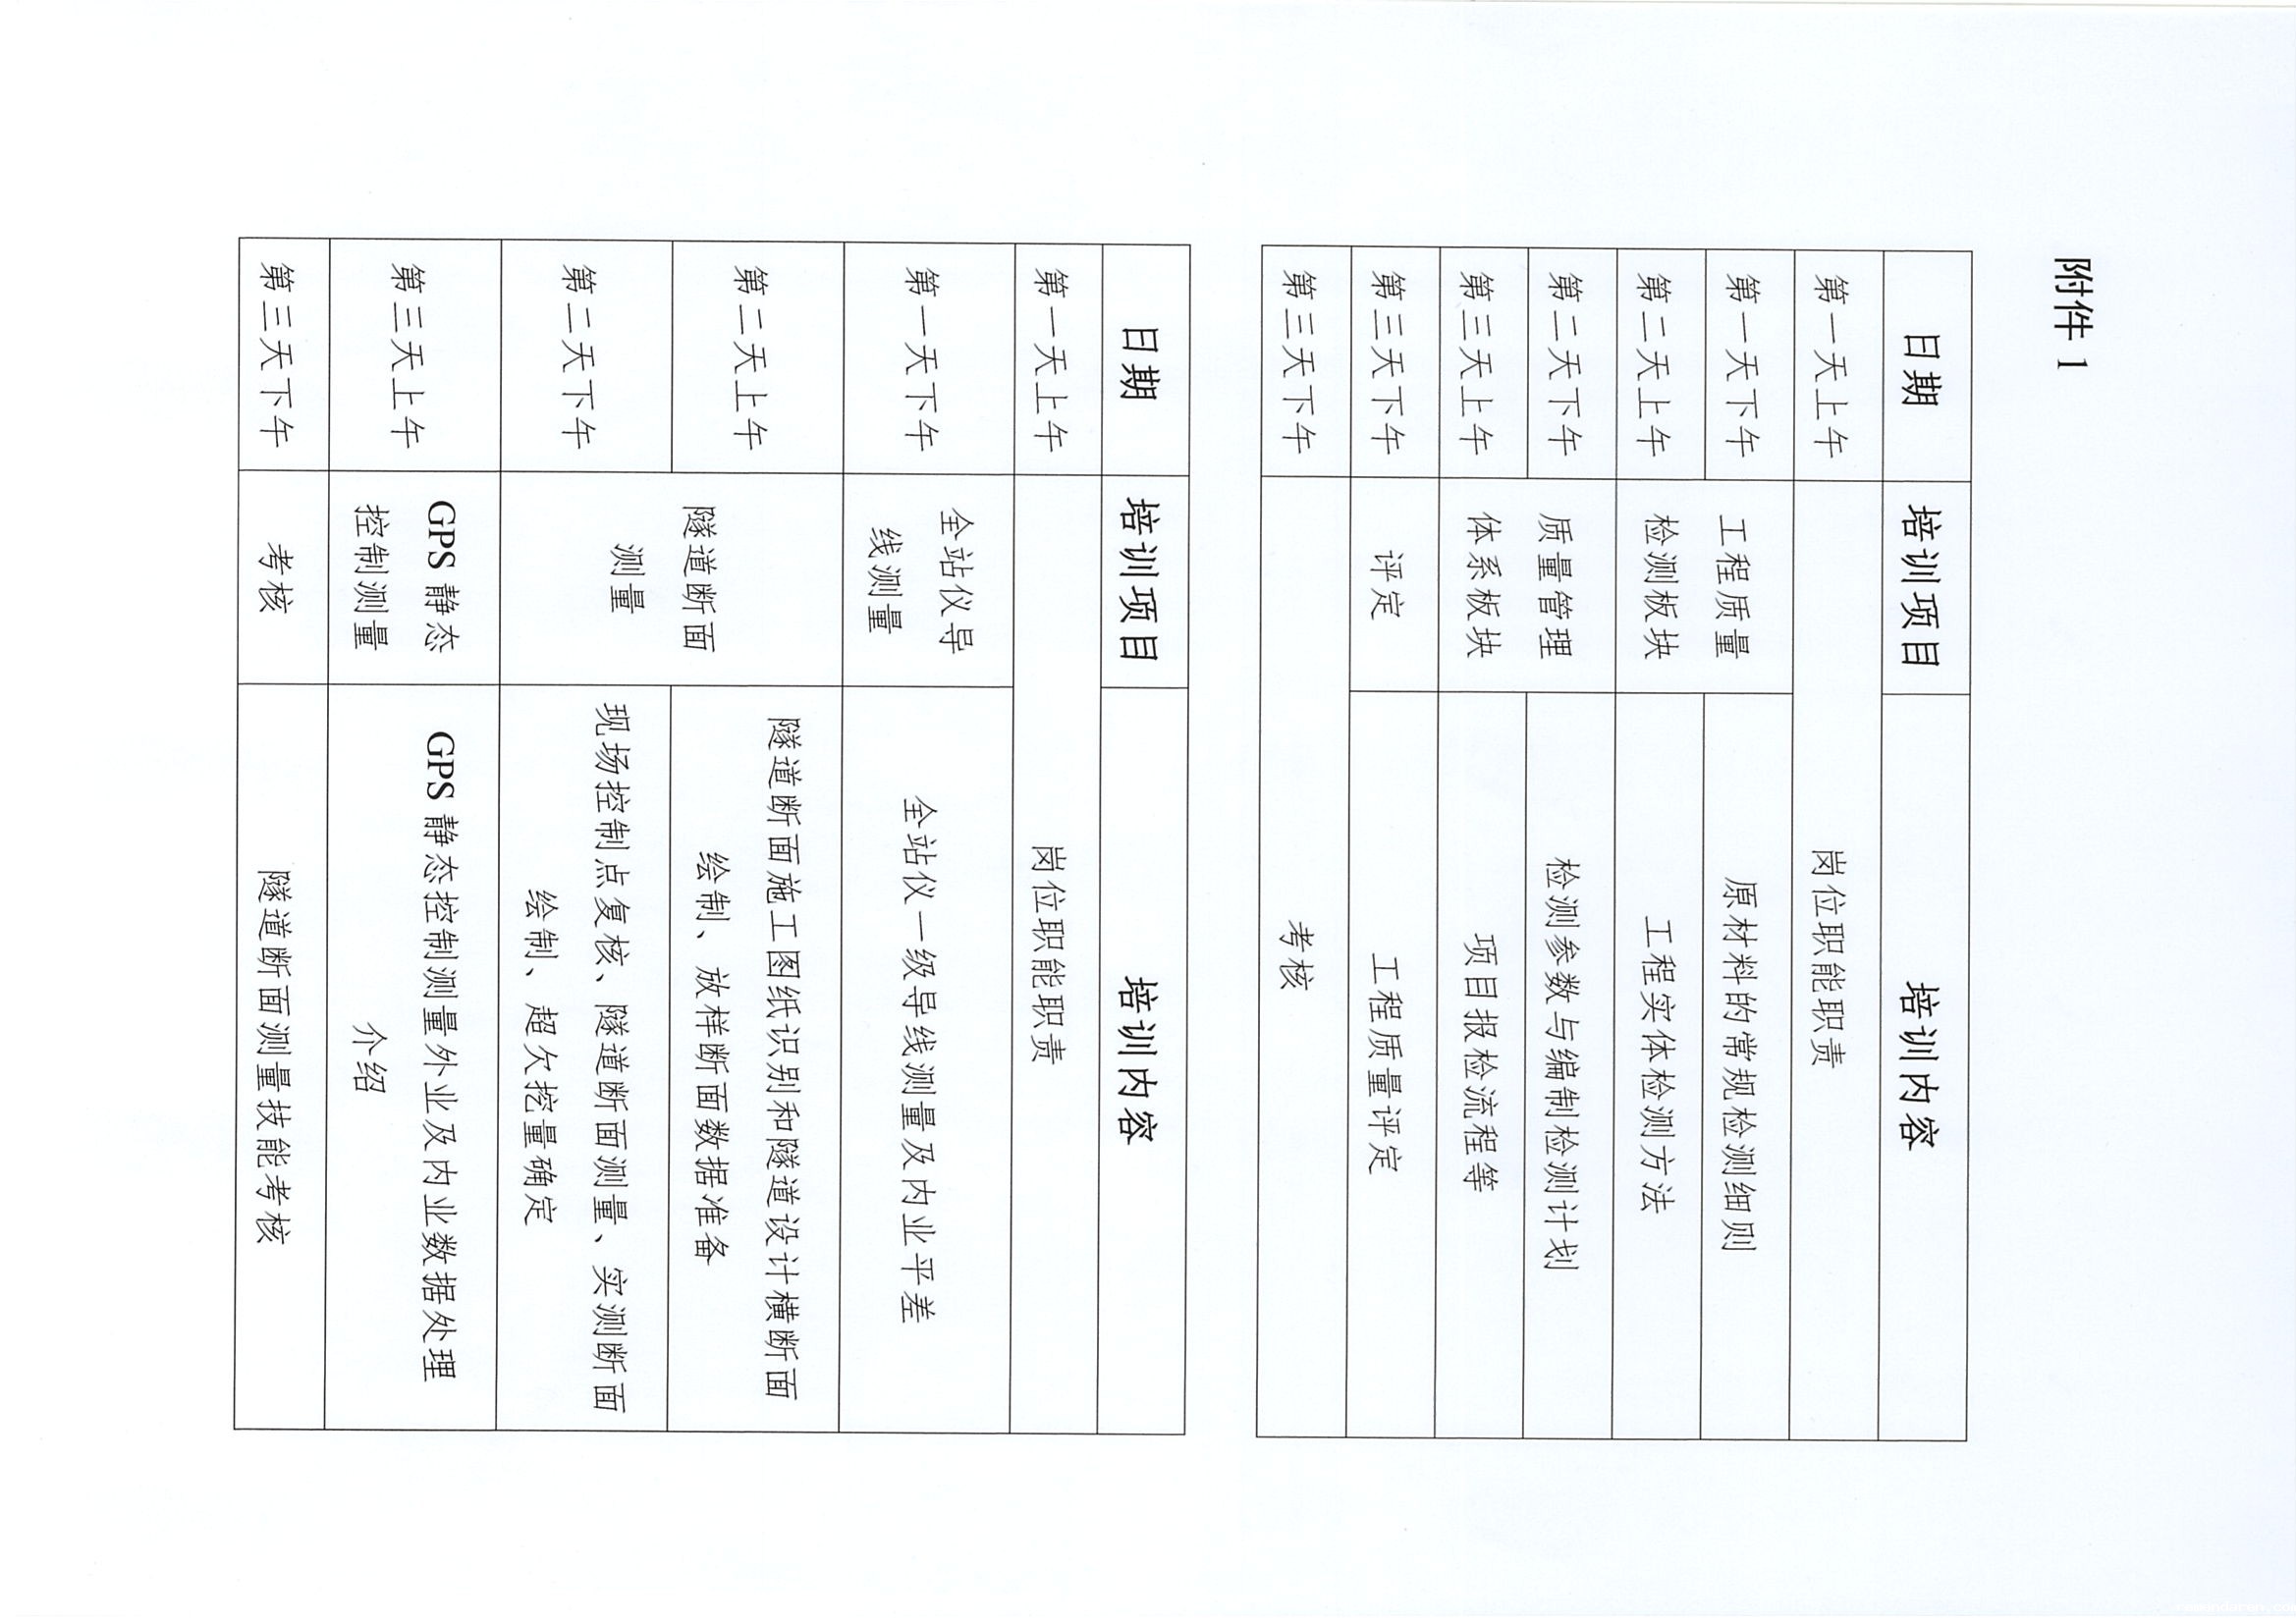 附件 1
日期 培训项目 培训内容
第一天上午 岗位职能职责
第一天下午 工程质量 原材料的常规检测细则
第二天上午 检测板块 工程实体检测方法
第二天下午 质量管理 检测参数与编制检测计划
第三天上午 体系板块 项目报检流程等
第三天下午 评定 工程质量评定
第三天下午 考核
日期 培训项目 培训内容
第一天上午 岗位职能职责
第一天下午 全站仪导 全站仪一级导线测量及内业平差
线测量
第二天上午 隧道断面 隧道断面施工图纸识别和隧道设计横断面
绘制、放样断面数据准备
第二天下午 测量 现场控制点复核、隧道断面测量、实测断面
绘制、超欠挖量确定
第三天上午 GPS 静态 GPS 静态控制测量外业及内业数据处理
控制测量 介绍
第三天下午 考核 隧道断面测量技能考核